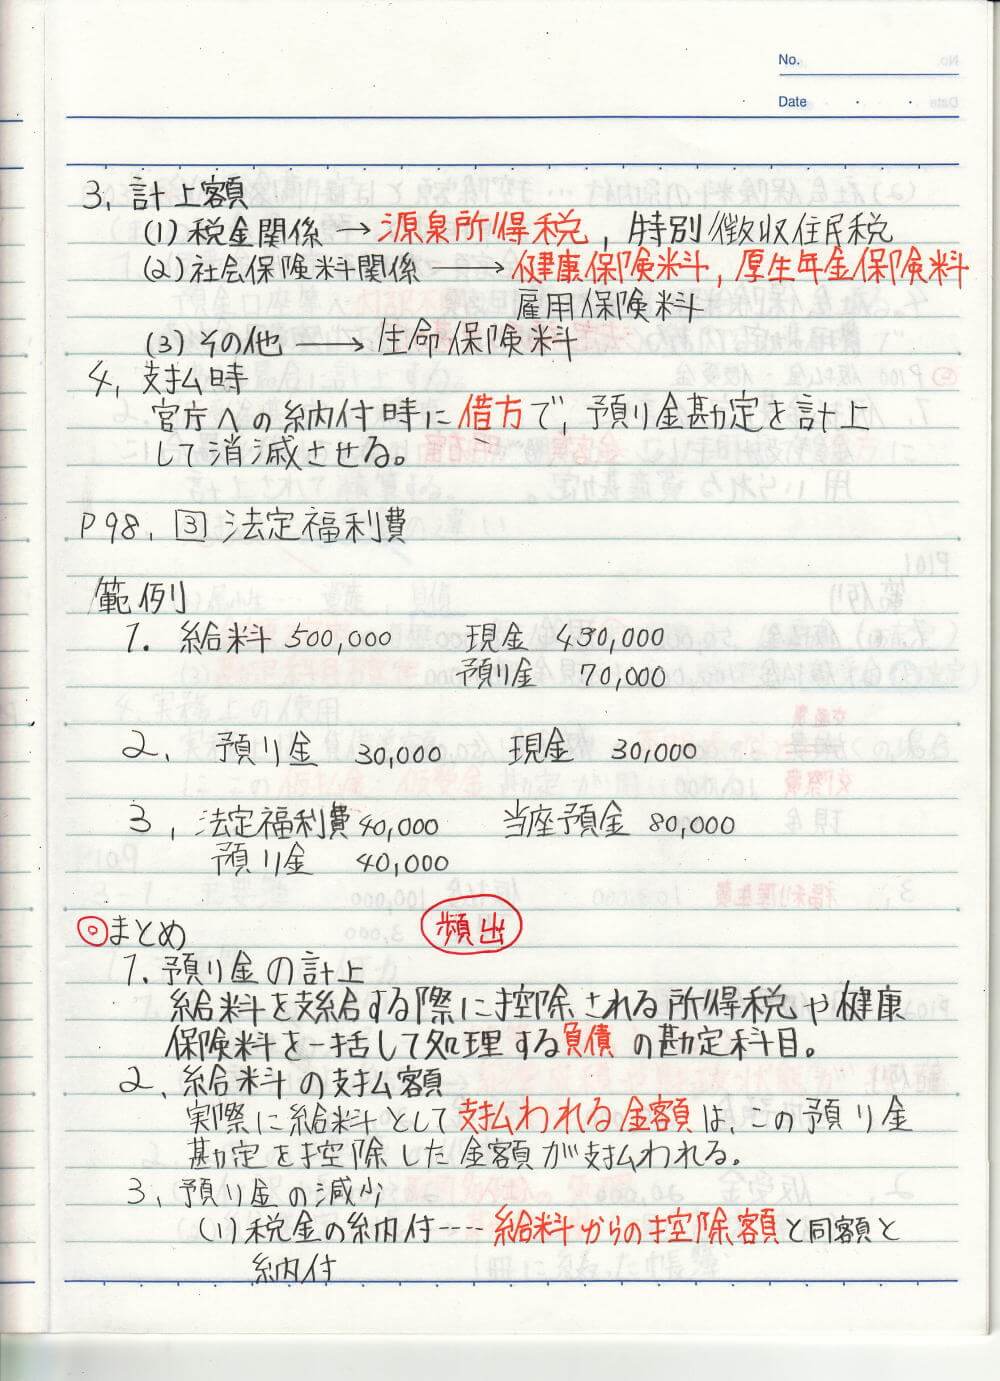 No.
Date
3, 計上額
(1) 税金関係 → 源泉所得税, 特別徴収住民税
(2) 社会保険料関係 → 健康保険料, 厚生年金保険料
雇用保険料
(3) その他 → 生命保険料
4, 支払時
官庁への納付時に借方で, 預り金勘定を計上
して消滅させる。
P98, 3 法定福利費
範例
1. 給料 500,000 現金 430,000
預り金 70,000
2, 預り金 30,000 現金 30,000
3, 法定福利費 40,000 当座預金 80,000
預り金 40,000
◎まとめ 頻出
1. 預り金の計上
給料を支給する際に控除される所得税や健康
保険料を一括して処理する負債の勘定科目。
2, 給料の支払額
実際に給料として支払われる金額は、この預り金
勘定を控除した金額が支払われる。
3, 預り金の減少
(1) 税金の納付---- 給料からの控除額と同額と
納付